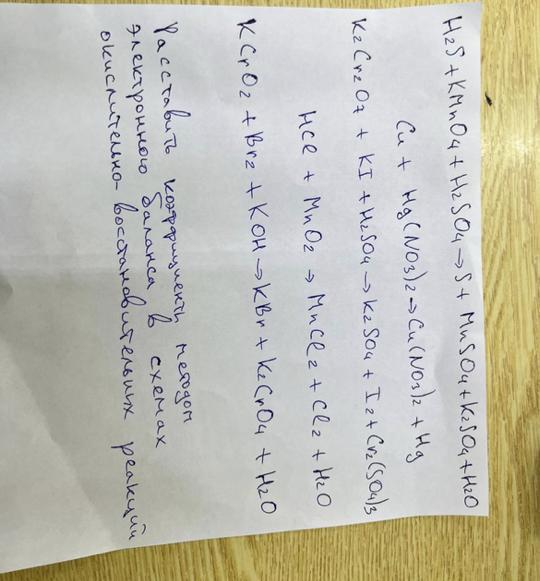 H2S + KMnO4 + H2SO4 → S + MnSO4 + K2SO4 + H2O
Cu + Hg(NO3)2 → Cu(NO3)2 + Hg
K2Cr2O7 + KI + H2SO4 → K2SO4 + I2 + Cr2(SO4)3
HCl + MnO2 → MnCl2 + Cl2 + H2O
KCrO2 + Br2 + KOH → KBr + K2CrO4 + H2O
Расставить коэффициенты методом
электронного баланса в схемах
окислительно-восстановительных реакций